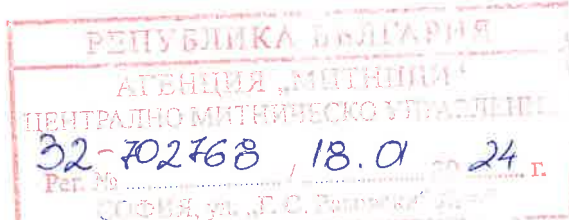 РЕПУБЛИКА БЪЛГАРИЯ
АГЕНЦИЯ „МИТНИЦИ“
ЦЕНТРАЛНО МИТНИЧЕСКО УПРАВЛЕНИЕ
32-702768 / 18.01 20 24 г.
Рег. №
СОФИЯ, ул. „Г. С. Раковски“